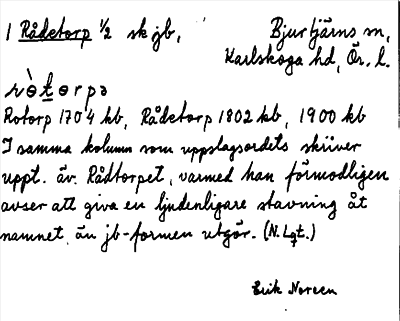 1 Rådetorp 1/2 sk jb, Bjurtjärns sn,
Karlskoga hd, Ör. l.
rò̀tɵrpə
Rotorp 1704 kb, Rådetorp 1802 kb, 1900 kb
I samma kolumn som uppslagsordets skriver
uppt. äv. Rådtorpet, varmed han förmodligen
avser att giva en ljudenligare stavning åt
namnet än jb-formen utgör. (N. Lgt.)
Erik Noreen